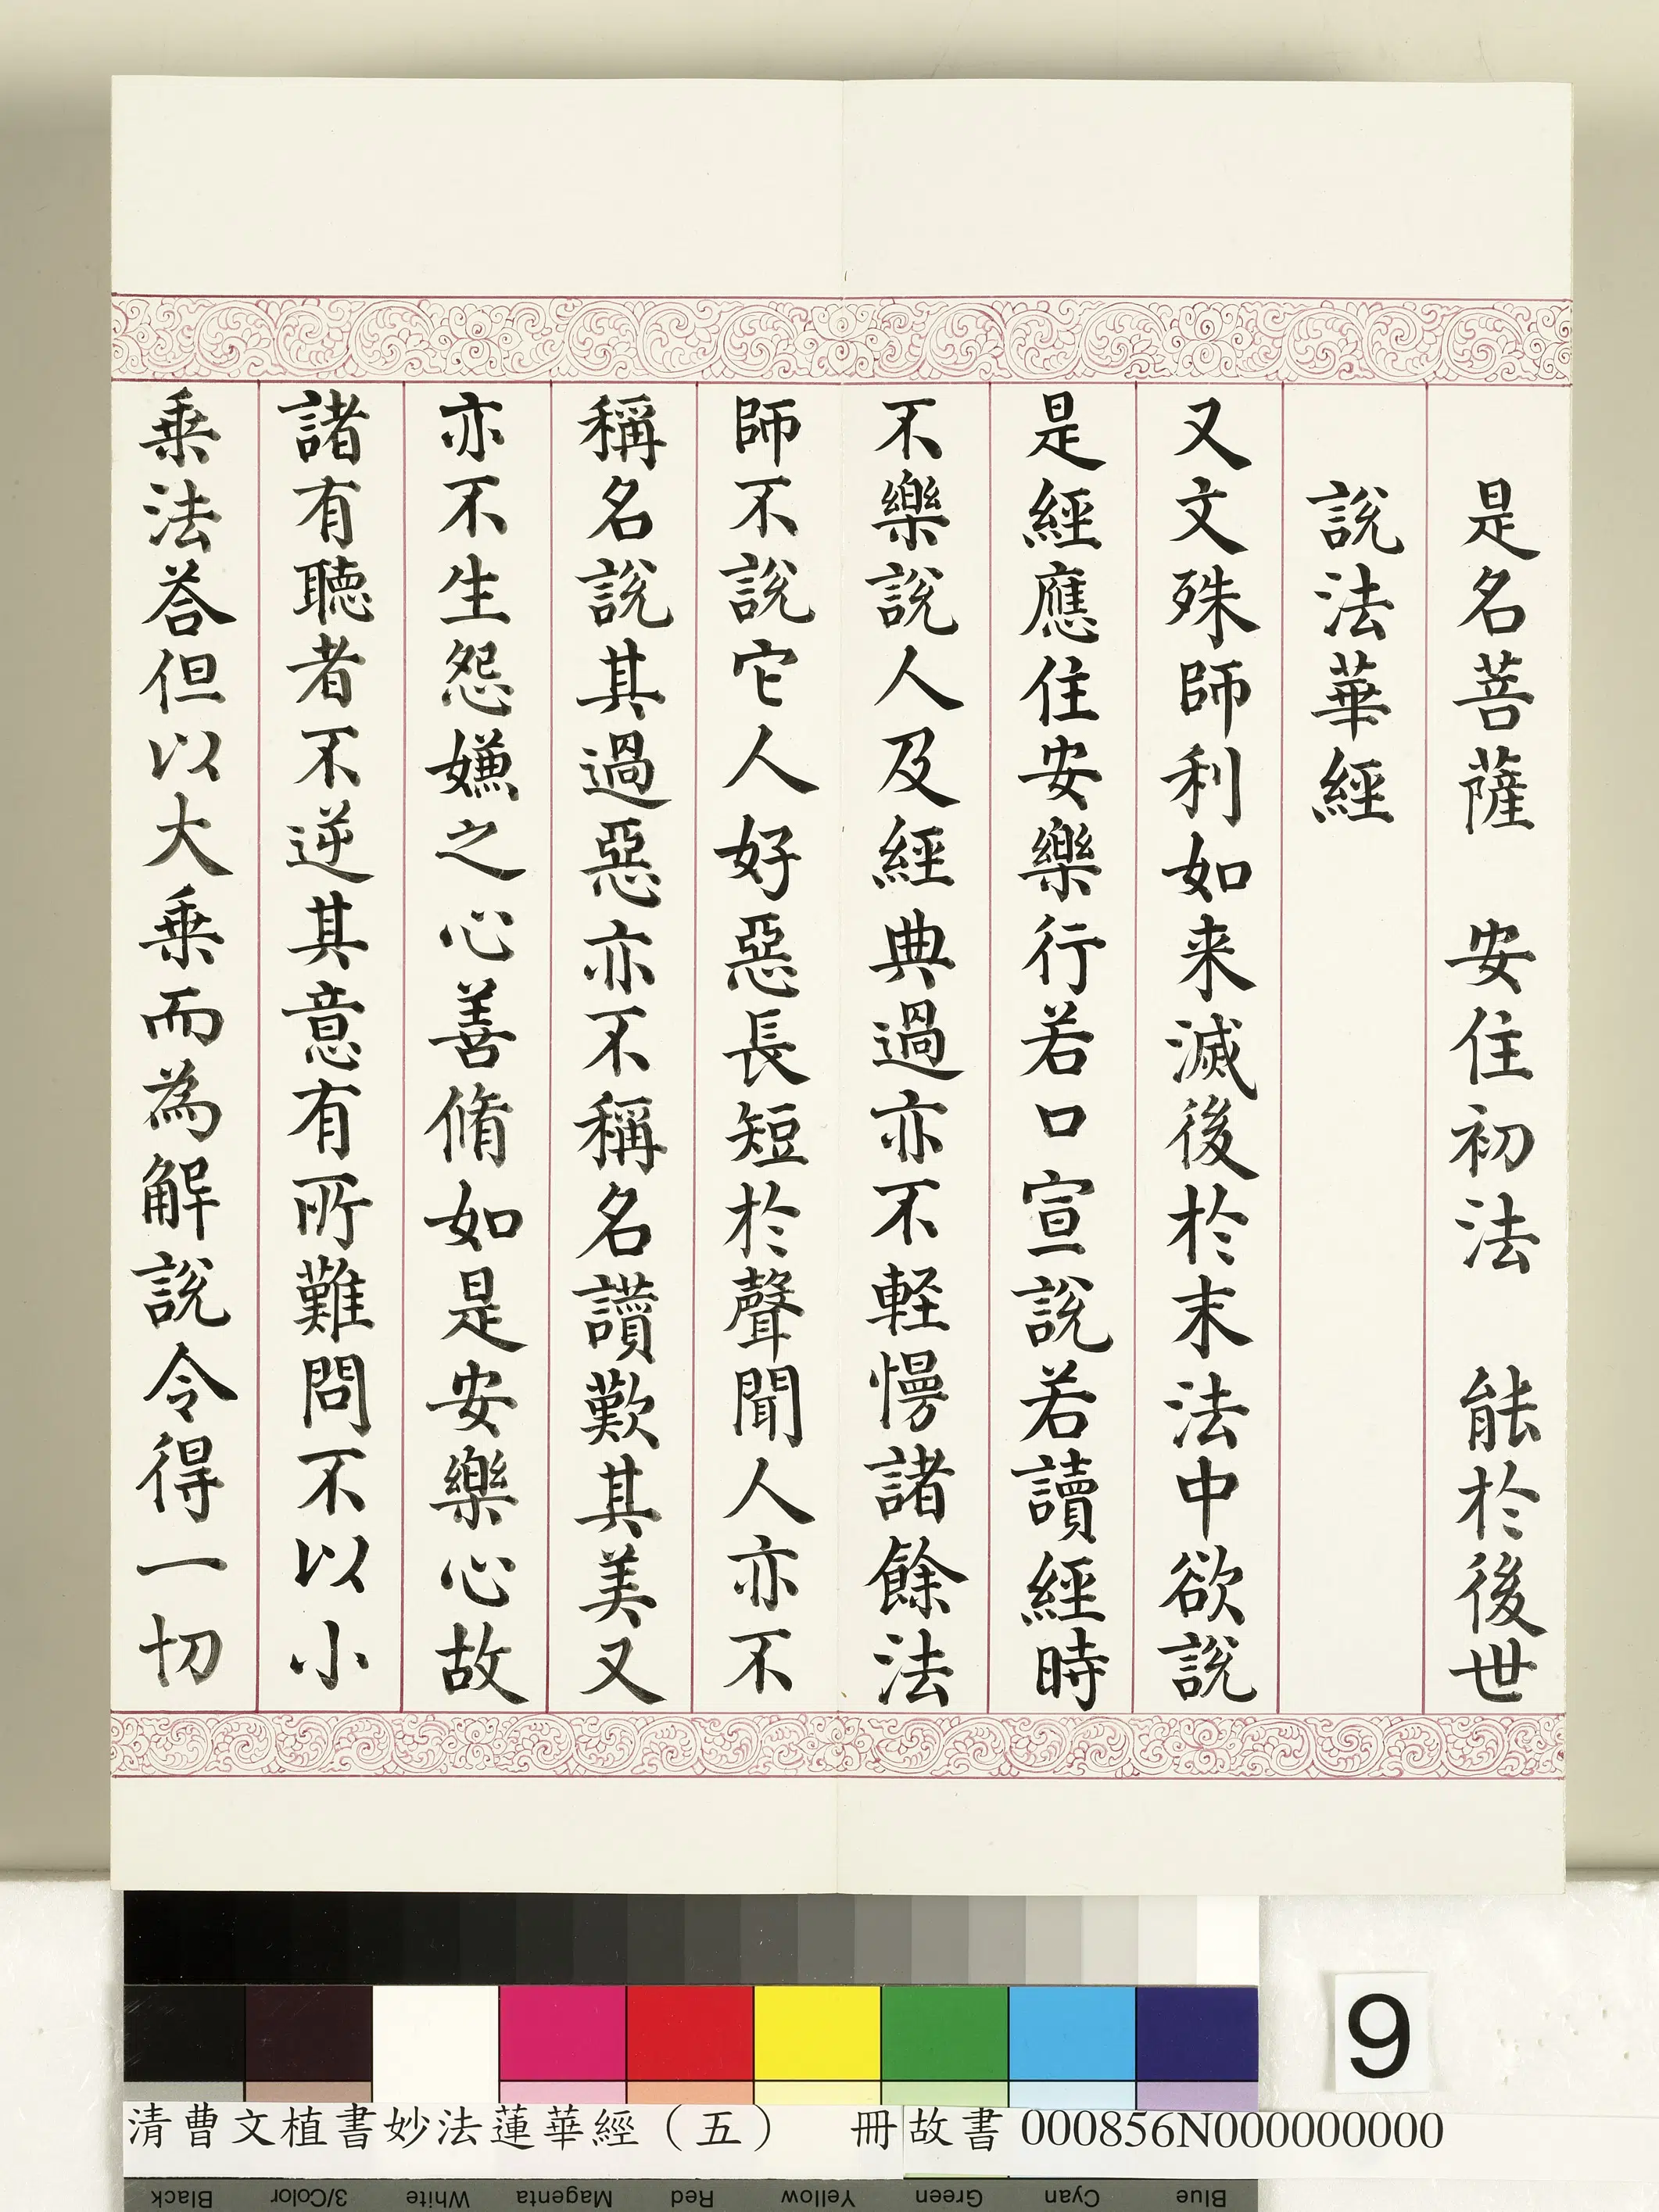 是名菩薩　安住初法　能於後世
説法華經
又文殊師利如来滅後於末法中欲説
是經應住安樂行若口宣説若讀經時
不樂説人及經典過亦不軽慢諸餘法
師不説它人好惡長短於聲聞人亦不
稱名説其過惡亦不稱名讃歎其美又
亦不生怨嫌之心善脩如是安樂心故
諸有聴者不逆其意有所難問不以小
乗法荅但以大乗而為解説令得一切
9
清曹文植書妙法蓮華經（五）　冊 故書 000856N000000000
Black 3/Color White Magenta Red Yellow Green Cyan Blue